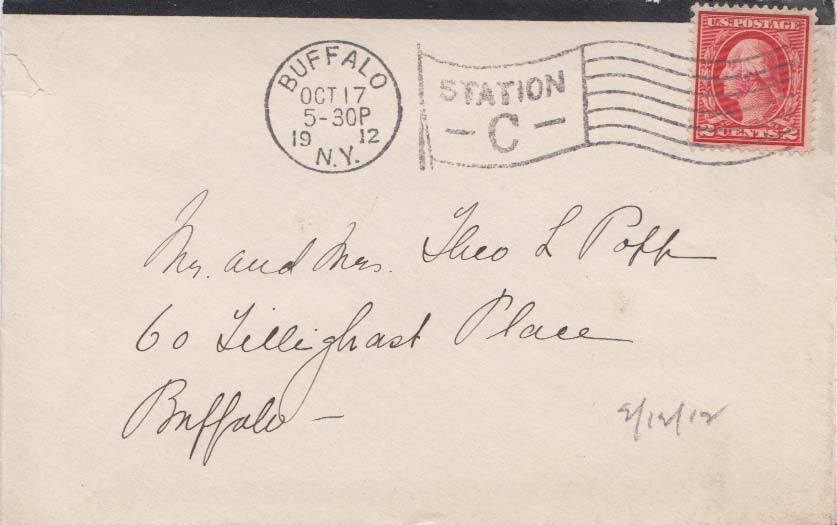 U.S. POSTAGE
2 CENTS 2
BUFFALO
OCT 17
5-30P
19 12
N.Y.
STATION
- C -
Mr. and Mrs. Theo L Popp
60 Tillinghast Place
Buffalo -